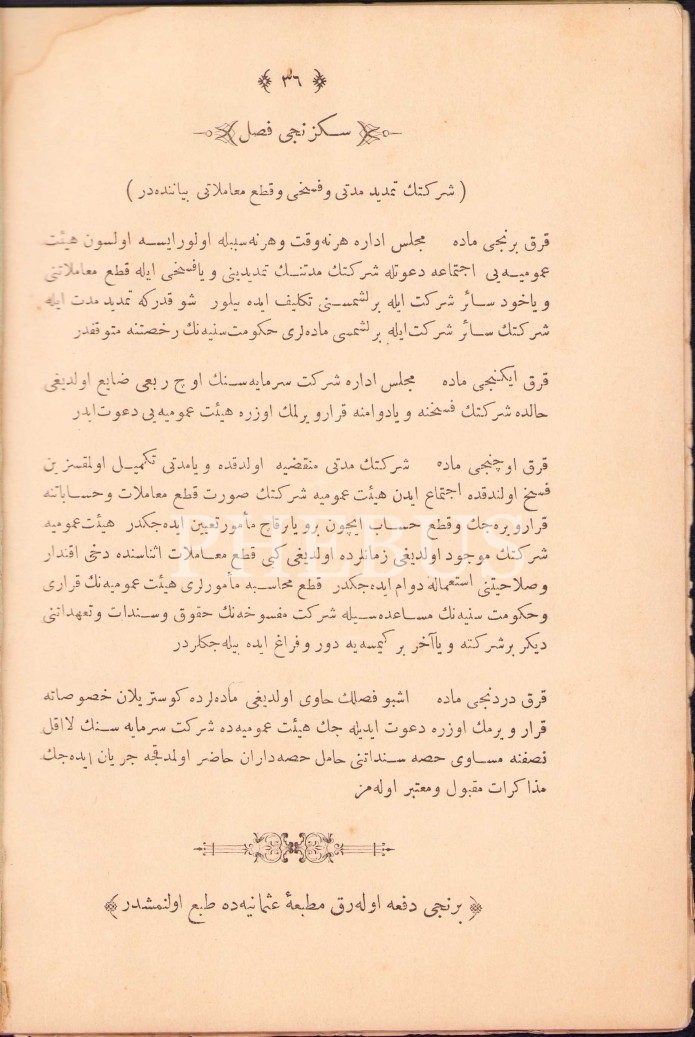 ﴿ ٣٦ ﴾
سكزنجی فصل
( شركتك تمدید مدتی و فسخی و قطع معاملاتی بیاننده‌در )
قرق برنجی ماده مجلس اداره هر نه‌وقت و هر نه سببله اولورایسه اولسون هیئت
عمومیه‌یی اجتماعه دعوتله شركتك مدتنك تمدیدینی و یافسخی ایله قطع معاملاتنی
و یاخود سائر شركت ایله برلشمسنی تكلیف ایده بیلور شو قدركه تمدید مدت ایله
شركتك سائر شركت‌ایله برلشمسی ماده‌لری حكومت‌سنیه‌نك رخصتنه متوقفدر
قرق ایكنجی ماده مجلس اداره شركت سرمایه‌سنك اوچ ربعی ضایع اولدیغی
حالده شركتك فسخنه و یادوامنه قرارویرلمك اوزره هیئت عمومیه‌یی دعوت‌ایدر
قرق اوچنجی ماده شركتك مدتی منقضیه اولدقده و یامدتی تكمیل اولمقسزین
فسخ اولندقده اجتماع ایدن هیئت عمومیه شركتك صورت قطع معاملات و حساباتنه
قرارویره‌جك و قطع حساب ایچون برویابرقاچ مأمورتعیین ایده‌جكدر هیئت‌عمومیه
شركتك موجود اولدیغی زمانلرده اولدیغی كبی قطع معاملات اثناسنده دخی اقتدار
و صلاحیتنی استعماله دوام ایده‌جكدر قطع محاسبه مأمورلری هیئت عمومیه‌نك قراری
و حكومت سنیه‌نك مساعده‌سیله شركت مفسوخه‌نك حقوق و سندات و تعهداتنی
دیكر برشركته و یاآخر بر كیمسه‌یه دور و فراغ ایده بیله‌جكلردر
قرق دردنجی ماده اشبو فصلك حاوی اولدیغی ماده‌لرده كوستریلان خصوصاته
قرار ویرمك اوزره دعوت ایدیله جك هیئت عمومیه‌ده شركت سرمایه سنك لااقل
نصفنه مساوی حصه سنداتنی حامل حصه‌داران حاضر اولمدقجه جریان ایده‌جك
مذاكرات مقبول و معتبر اوله‌مز
﴿ برنجی دفعه اوله‌رق مطبعهٔ عثمانیه‌ده طبع اولنمشدر ﴾
PHEBUS